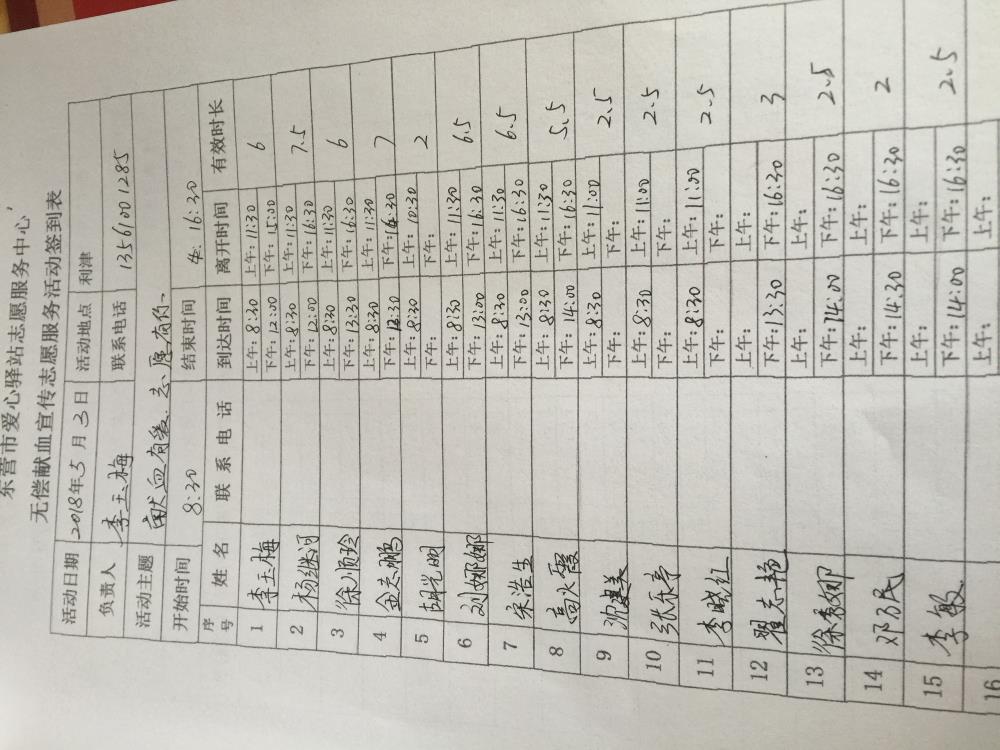 东营市爱心驿站志愿服务中心
无偿献血宣传志愿服务活动签到表
活动日期 2018年5月3日 活动地点 利津
负责人 李玉梅 联系电话 13561001285
活动主题 献血有爱.志愿有你.
开始时间 8:30 结束时间 16:30
序号 姓名 联系电话 到达时间 离开时间 有效时长
1 李玉梅 上午:8:30 上午:11:30 6
下午:12:00 下午:15:00
2 杨继河 上午:8:30 上午:11:30 7.5
下午:12:00 下午:16:30
3 徐顺玲 上午:8:30 上午:11:30 6
下午:13:30 下午:16:30
4 金志鹏 上午:8:30 上午:11:30 7
下午:12:30 下午:16:30
5 胡光明 上午:8:30 上午:10:30 2
下午: 下午:
6 刘娜娜 上午:8:30 上午:11:30 6.5
下午:13:00 下午:16:30
7 宋浩生 上午:8:30 上午:11:30 6.5
下午:13:00 下午:16:30
8 高水霞 上午:8:30 上午:11:30 5.5
下午:14:00 下午:16:30
9 美 上午:8:30 上午:11:00 2.5
下午: 下午:
10 张乐亭 上午:8:30 上午:11:00 2.5
下午: 下午:
11 李晓红 上午:8:30 上午:11:00 2.5
下午: 下午:
12 翟志艳 上午: 上午: 3
下午:13:30 下午:16:30
13 徐秀娜 上午: 上午: 2.5
下午:14:00 下午:16:30
14 邓民 上午: 上午: 2
下午:14:30 下午:16:30
15 李敏 上午: 上午: 2.5
下午:14:00 下午:16:30
16 上午: 上午: